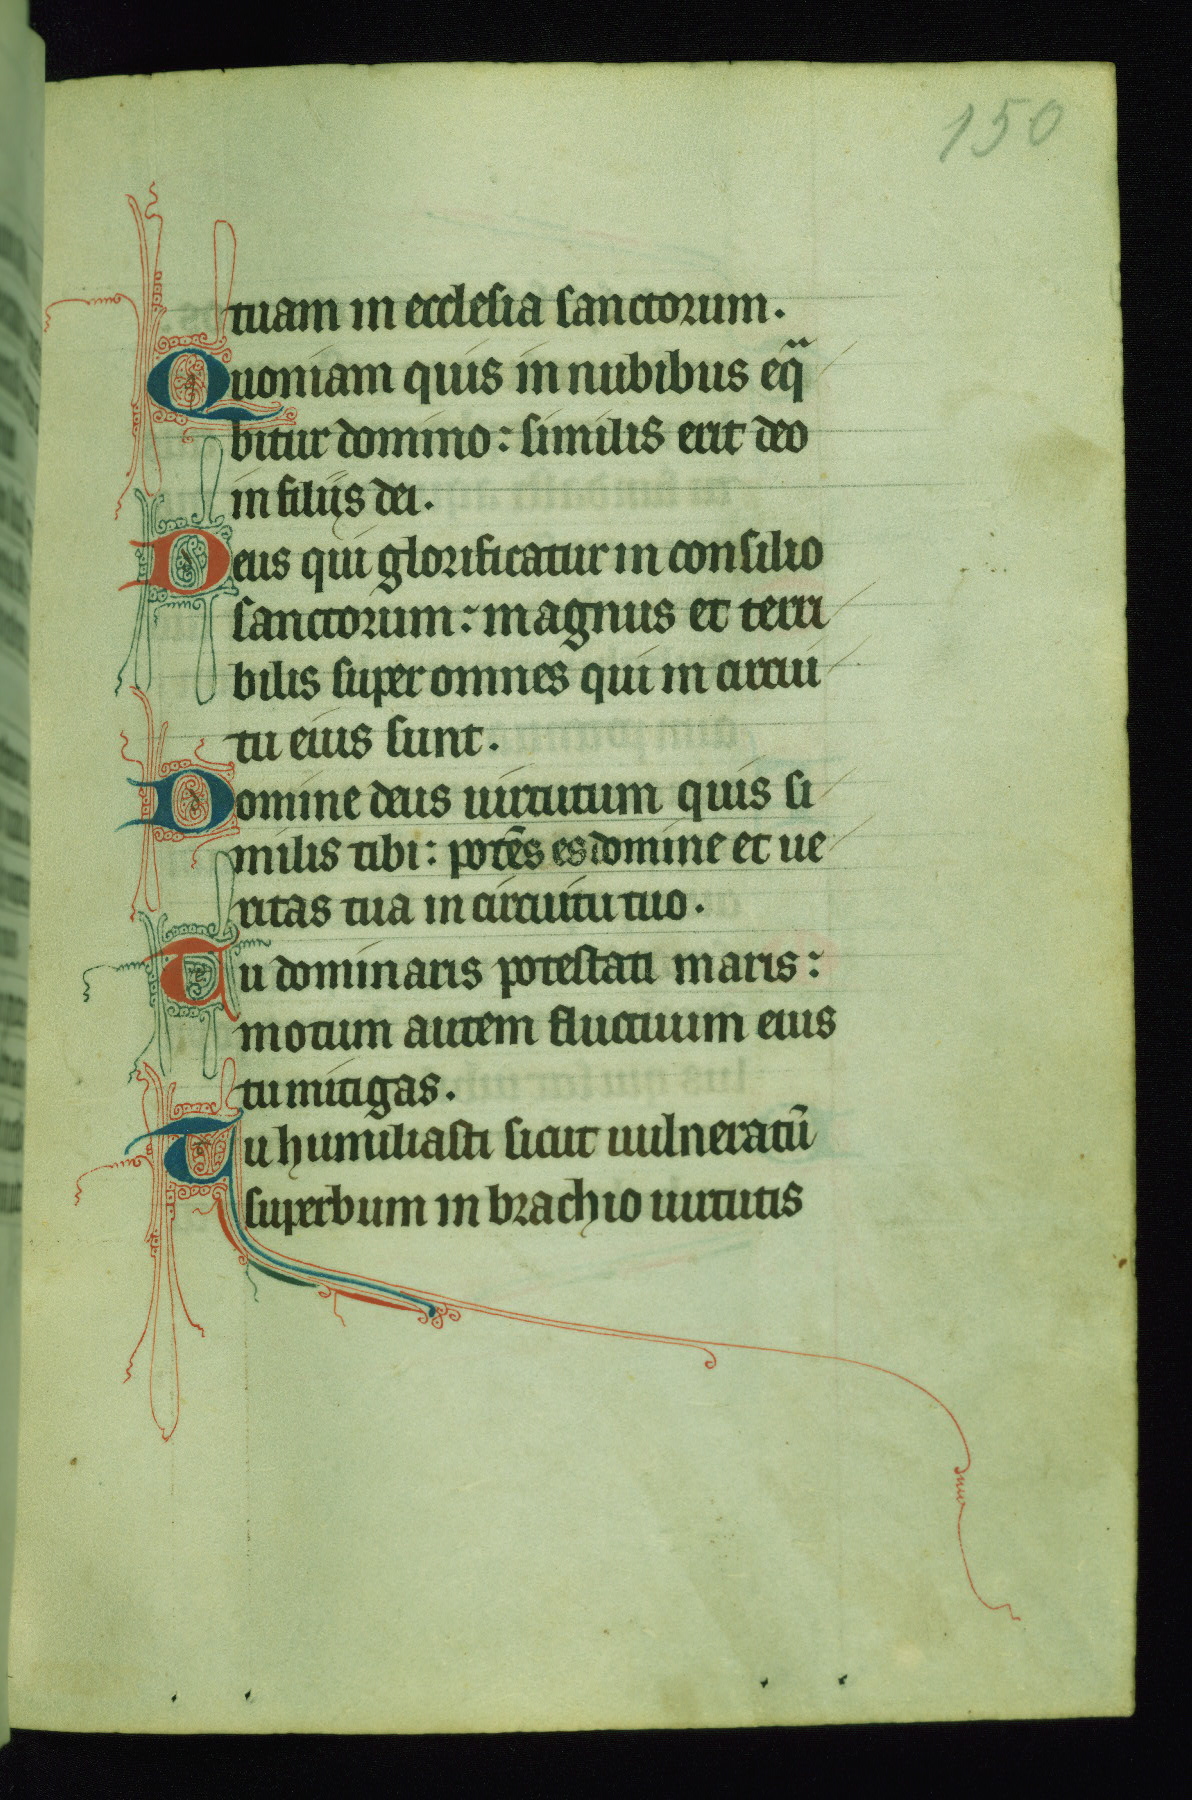 150
tuam in ecclesia sanctorum.
Quoniam quis in nubibus eqͣ
bitur domino: similis erit deo
in filiis dei.
Deus qui glorificatur in consilio
sanctorum: magnus et terri
bilis super omnes qui in circui
tu eius sunt.
Domine deus uirtutum quis si
milis tibi: potēs es domine et ue
ritas tua in circuitu tuo.
Tu dominaris potestati maris:
motum autem fluctuum eius
tu mitigas.
Tu humiliasti sicut uulneratū
superbum in brachio uirtutis